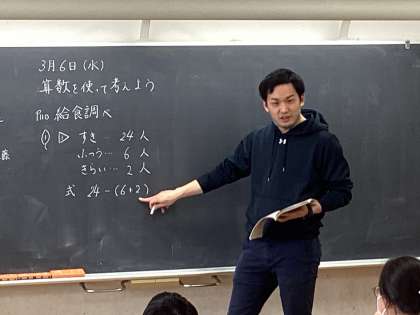 3月6日(水)
算数を使って考えよう
P110 給食調べ
① ▷ すき… 24人
ふつう… 6人
きらい… 2人
式 24-(6+2)